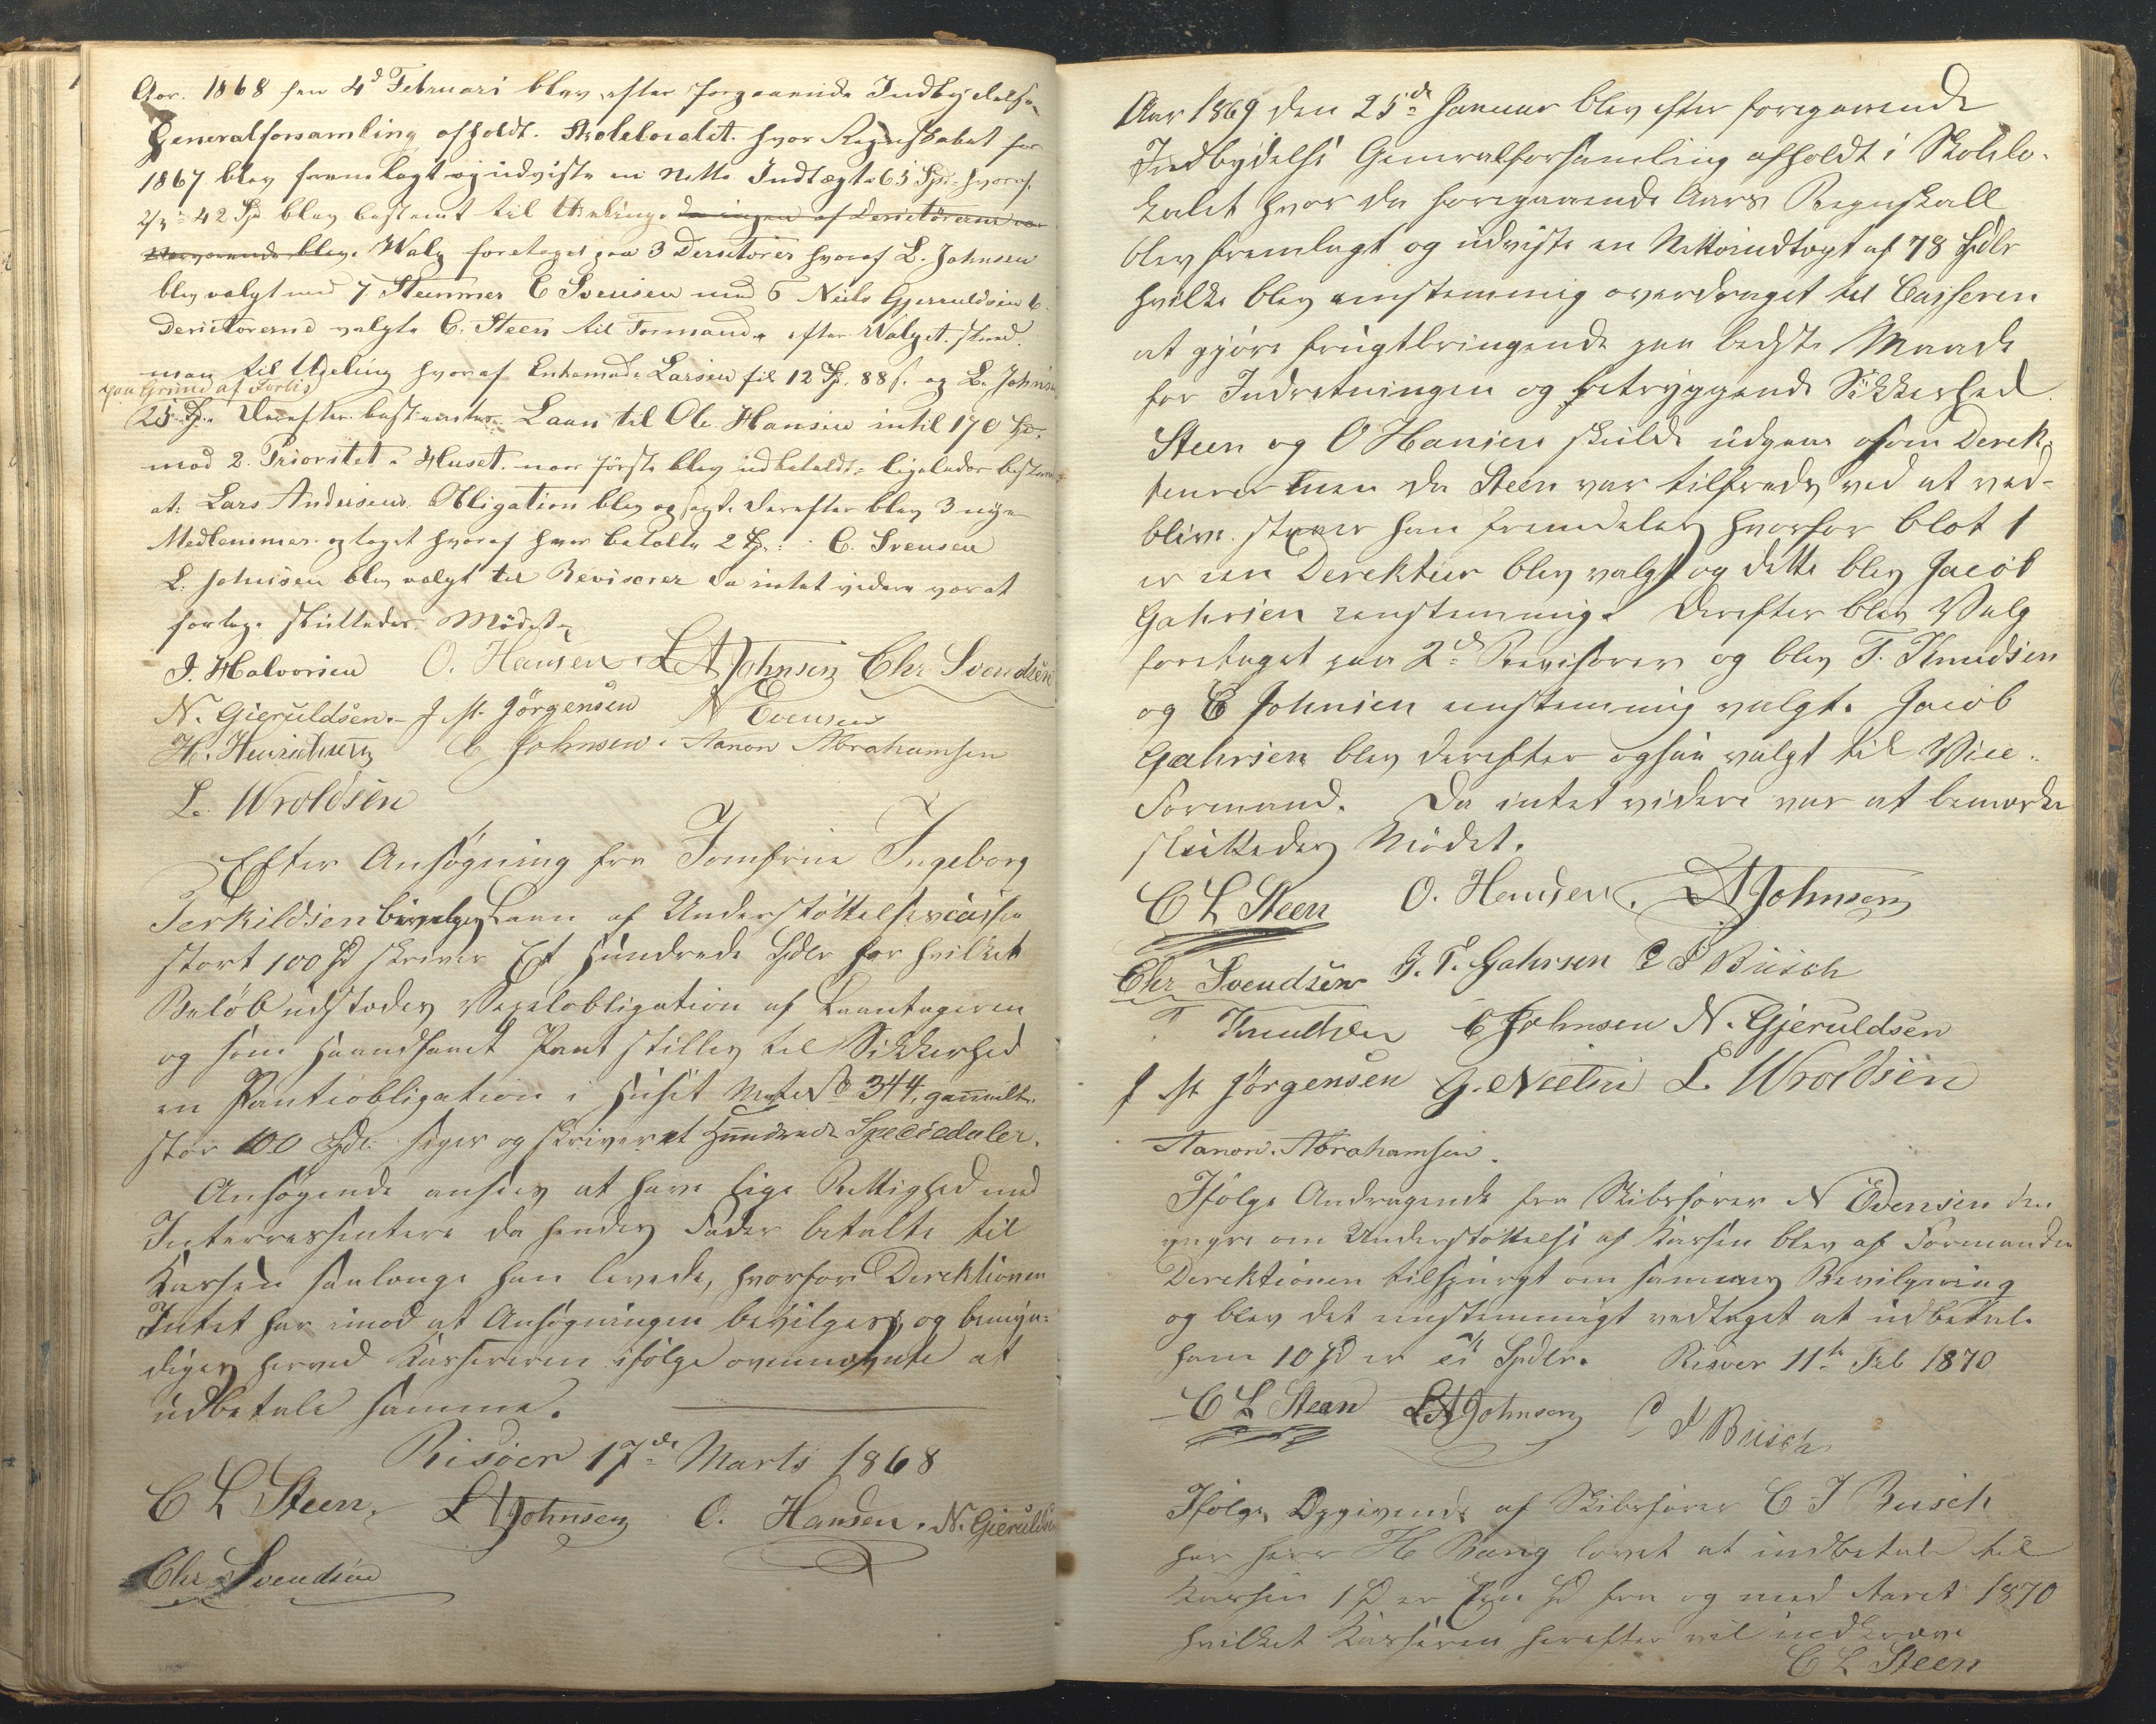 Aar. 1868 den 4d Februari blev efter forgaaende Indbydelse
Generalforsamling afholdt. Skolelocalet. hvor Regnskabet for
1867 blev fremlagt og udviste en Netto Indtægt 63 Spd hvoraf
2/3 = 42 Sp blev bestemt til Udeling. da ingen af Derictörerne var
Nærværende blev. Valg foretaget paa 3 Derictörer hvoraf L. Johnsen
blev valgt med 7 Stemmer C Svensen med 6 Neils Gjeruldsen 6.
Derictörerne valgte C. Steen til Formand. efter Valget skred
man til Udeling hvoraf Enkemad. Larsen fik 12 Sp. 88 s. og L. Johnsen
paa Grund af Forlis
25 Sp. Derefter bestemtes Laan til Ole Hansen intil 170 Sp.
mod 2. Prioritet i Huset. naar förste blev udbetalt. ligeledes bestemt
at Lars Andersens Obligation blev opsagt. derefter blev 3 nye
Medlemmer optaget hvoraf hver betalte 2 Sp. C. Svensen
L. Johnsen blev valgt til Reviserer da intet videre var at
foretage sluttedes Mödet.
J. Halvorsen O. Hansen. L A Johnsen Chr Svendsen
N. Gieruldsen. J M. Jörgensen N Evensen
H. Henrichsen C Johnsen. Aanon Abrahamsen
L. Wroldsen
Efter Ansögning fra Jomfrue Ingeborg
Terkildsen bevilges Laan af Understöttelsescassen
stort 100 Sp skriver Et Hundrede Spdlr for hvilket
Belöb udstædes Vexelobligation af Laantageren
og som haandfaaet Pant stilles til Sikkerhed
en Panteobligation i Huset Mate No 344, gammelt.
stor 100 Spd. siger og skriver et Hundrede Speciedaler.
Ansögende ansees at have lige Rettighed med
Interressentere da hendes Fader betalte til
Kassen saalænge han levede, hvorfor Direktionen
Intet har imod at Ansögningen bevilges, og bemyn-
diges herved Kassereren ifölge ovennævnte at
udbetale samme.
Risöer 17de Marts 1868
C L Steen. L A Johnsen O. Hansen. N. Gieruldsen
Chr Svendsen
Aar 1869 den 25de Januar blev efter foregaaende
Indbydelse Generalforsamling afholdt i Skolelo-
kalet hvor da foregaaende Aars Regnskall
blev fremlagt og udviste en Nettoindtægt af 78 Spdlr
hvilke blev enstemmig overdraget til Casseren
at gjöre frugtbringende paa bedste Maade
for Indretningen og betryggende Sikkerhed.
Steen og O Hansen skulde udgaae som Derek-
teurer men da Steen var tilfreds ved at ved-
blive. staaer han fremdeles hvorfor blot 1
er een Derekteur blev valgt og dette blev Jacob
Gahrsen eenstemmig. Derefter blev Valg
foretaget paa 2de Revisorer og blev T. Knudsen
og C Johnsen eenstemmig valgt. Jacob
Gahrsen blev derefter ogsaa valgt til Vice-
Formand. Da intet videre var at bemærke
sluttedes Mödet.
C L Steen O. Hansen. L A Johnsen
Chr Svendsen J. T. Gahrsen C J Busch
T Knudsen C Johnsen N. Gjeruldsen
J M Jörgensen G. L. Wroldsen
Aanon. Abrahamsen.
Ifölge Andragende fra Skibsförer N Evensen den
yngre om Understöttelse af Kassen blev af Formanden
Derektionen tilspurgt om sammes Bevilgning
og blev det eenstemmigt vedtaget at udbetale
ham 10 Sp er ti Spdlr. Risöer 11te Feb 1870
C L Steen L A Johnsen C J Busch
Ifölge Opgivende af Skibsförer C J Busch
har Herr H Bang lovet at indbetale til
Kassen 1 Sp er Een Sp fra og med Aaret 1870
hvilket Kasseren herefter vil indkræve
C L Steen